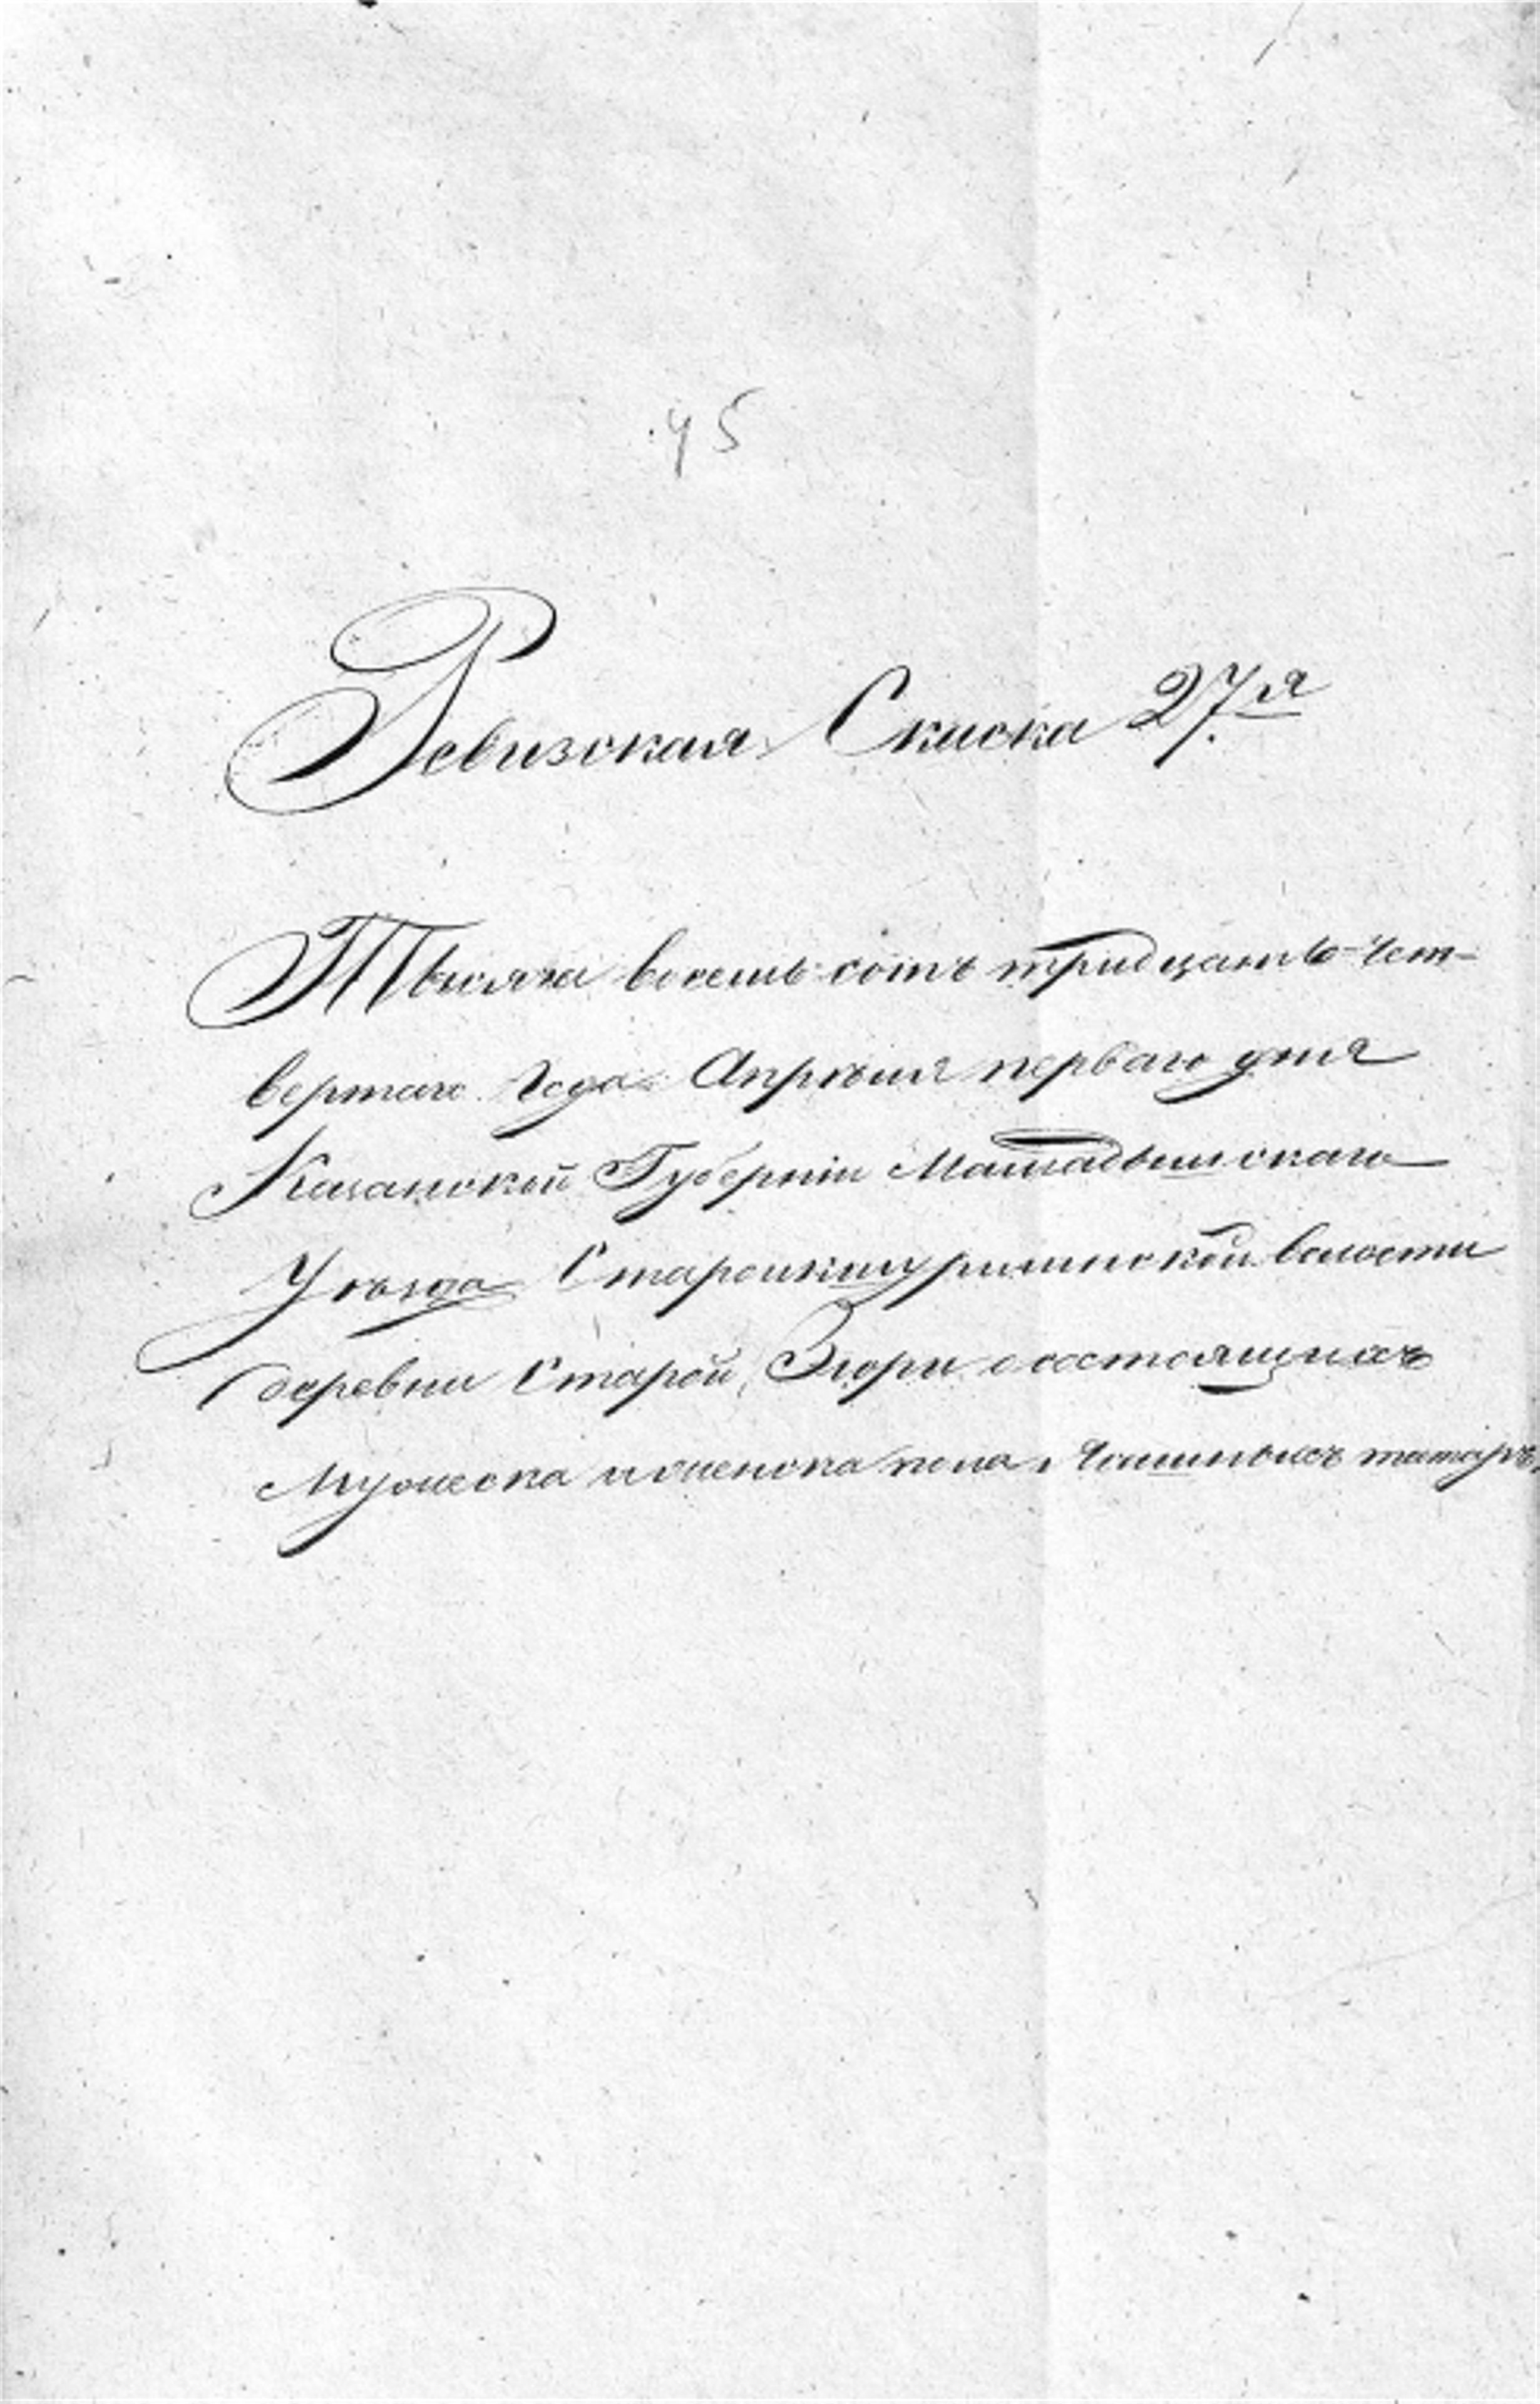 45
Ревизская Скаска 27.я
Тысяча восемь сотъ тридцать чет-
вертаго Года Апрѣля перваго дня
Казанской Губерніи Мамадышскаго
Уѣзда Старо волости
деревни Старой Зюри о состоящихъ
Мужеска и женска пола Ясашныхъ татаръ.